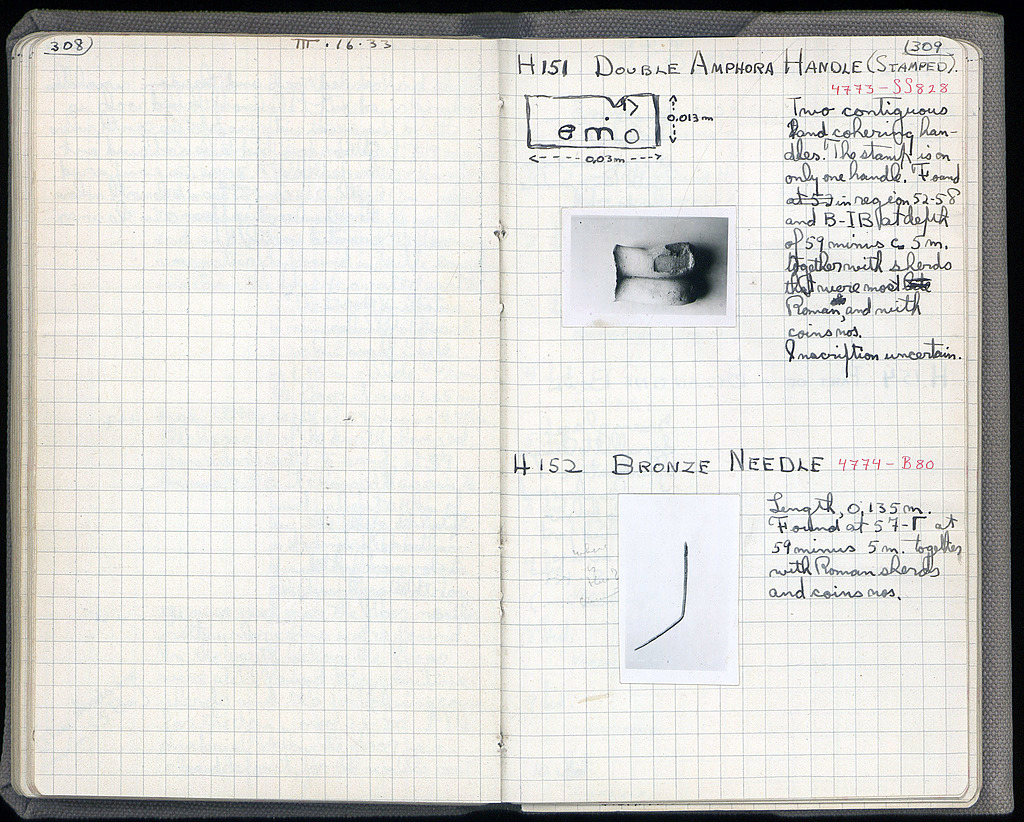 308
III.16.33
309
H 151 DOUBLE AMPHORA HANDLE (STAMPED).
4773-SS828
emo
0,013 m
0,03 m
Two contiguous
and cohering han-
dles. The stamp is on
only one handle. Found
at 57 in region 52-58
and B-IB at depth
of 59 minus c. 5 m.
together with sherds
that were most late
Roman, and with
coins nos.
Inscription uncertain.
H 152 BRONZE NEEDLE 4774-B80
Length, 0,135 m.
Found at 57-Γ at
59 minus 5 m. together
with Roman sherds
and coins nos.
when
is